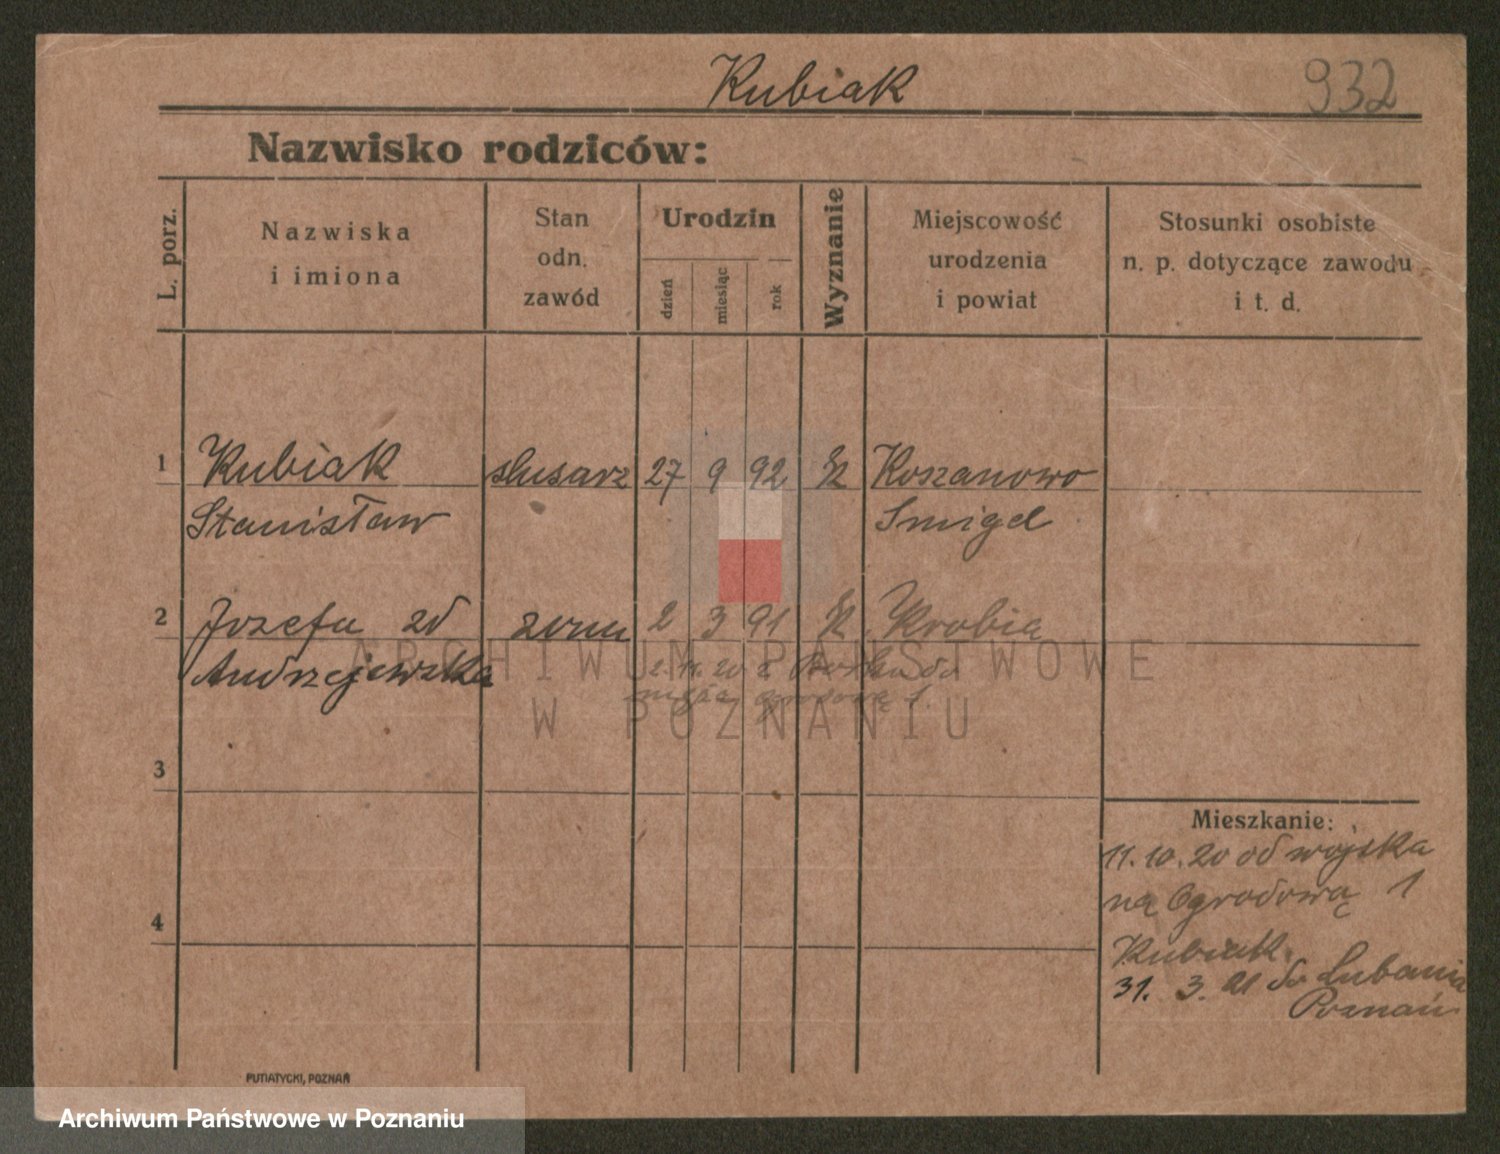 Kubiak
932
Nazwisko rodziców:
L. porz.
Nazwiska
i imiona
Stan
odn.
zawód
Urodzin
dzień
miesiąc
rok
Wyznanie
Miejscowość
urodzenia
i powiat
Stosunki osobiste
n. p. dotyczące zawodu
i t. d.
1 Kubiak slusarz 27 9 92 Koszanowo
Stanisław Smigel
2 Jozefa zd żona 2 3 91 Krobia
Andrzejewska
2. 11. 20 z
ogrodową 1.
3
4
Mieszkanie:
11.10.20 od wojska
na Ogrodową 1
Kubiak.
31. 3. 21 do Lubania
Poznań
PUTIATYCKI, POZNAŃ
ARCHIWUM PAŃSTWOWE
W POZNANIU
Archiwum Państwowe w Poznaniu